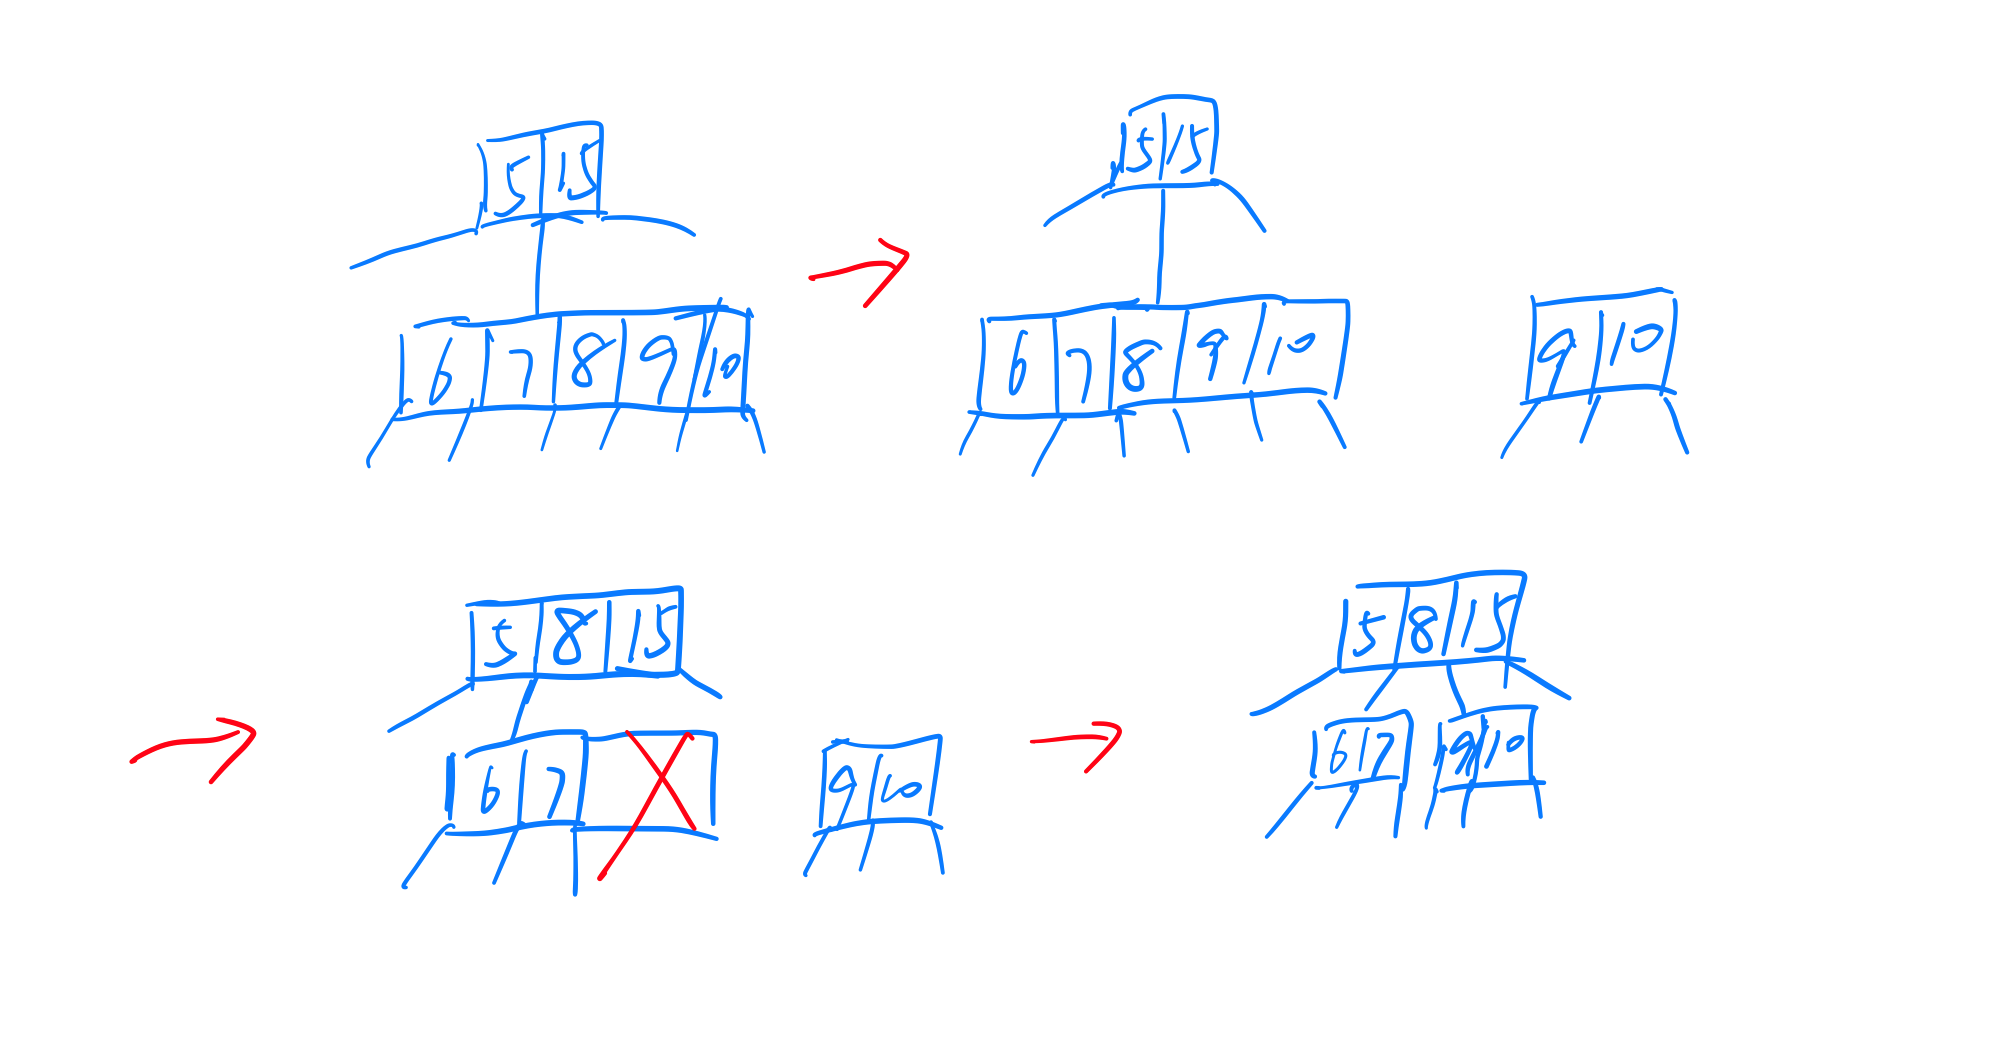 5 15
6 7 8 9 10
5 15
6 7 8 9 10
9 10
5 8 15
6 7
9 10
5 8 15
6 7
9 10